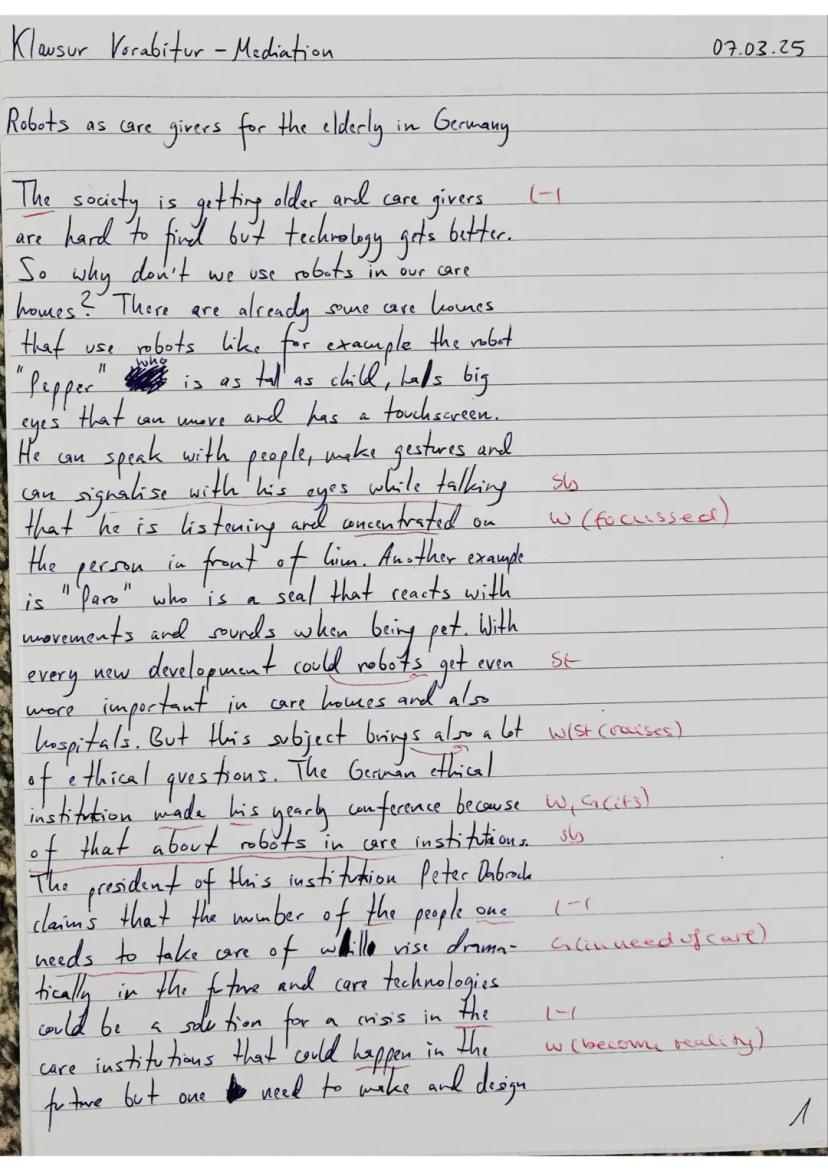 Klausur Vorabitur - Mediation 07.03.25
Robots as care givers for the elderly in Germany
The society is getting older and care givers (-(
are hard to find but technology gets better.
So why don't we use robots in our care
homes? There are already some care homes
that use robots like for example the robot
"Pepper" who is as tal as child, has big
eyes that can move and has a touchscreen.
He can speak with people, make gestures and
can signalise with his eyes while talking Sb
that he is listening and concentrated on W (focussed)
the person in front of him. Another example
is "Paro" who is a seal that reacts with
movements and sounds when being pet. With
every new development could robots get even St
more important in care homes and also
hospitals. But this subject brings also a lot W/St (raises)
of ethical questions. The German ethical
institution made his yearly conference because W, G (its)
of that about robots in care institutions. Sb
The president of this institution Peter Dabrock
claims that the number of the people one (-(
needs to take care of will rise drama- G (in need of care)
tically in the future and care technologies
could be a solution for a crisis in the (-(
care institutions that could happen in the W (become reality)
future but one need to make and design
1